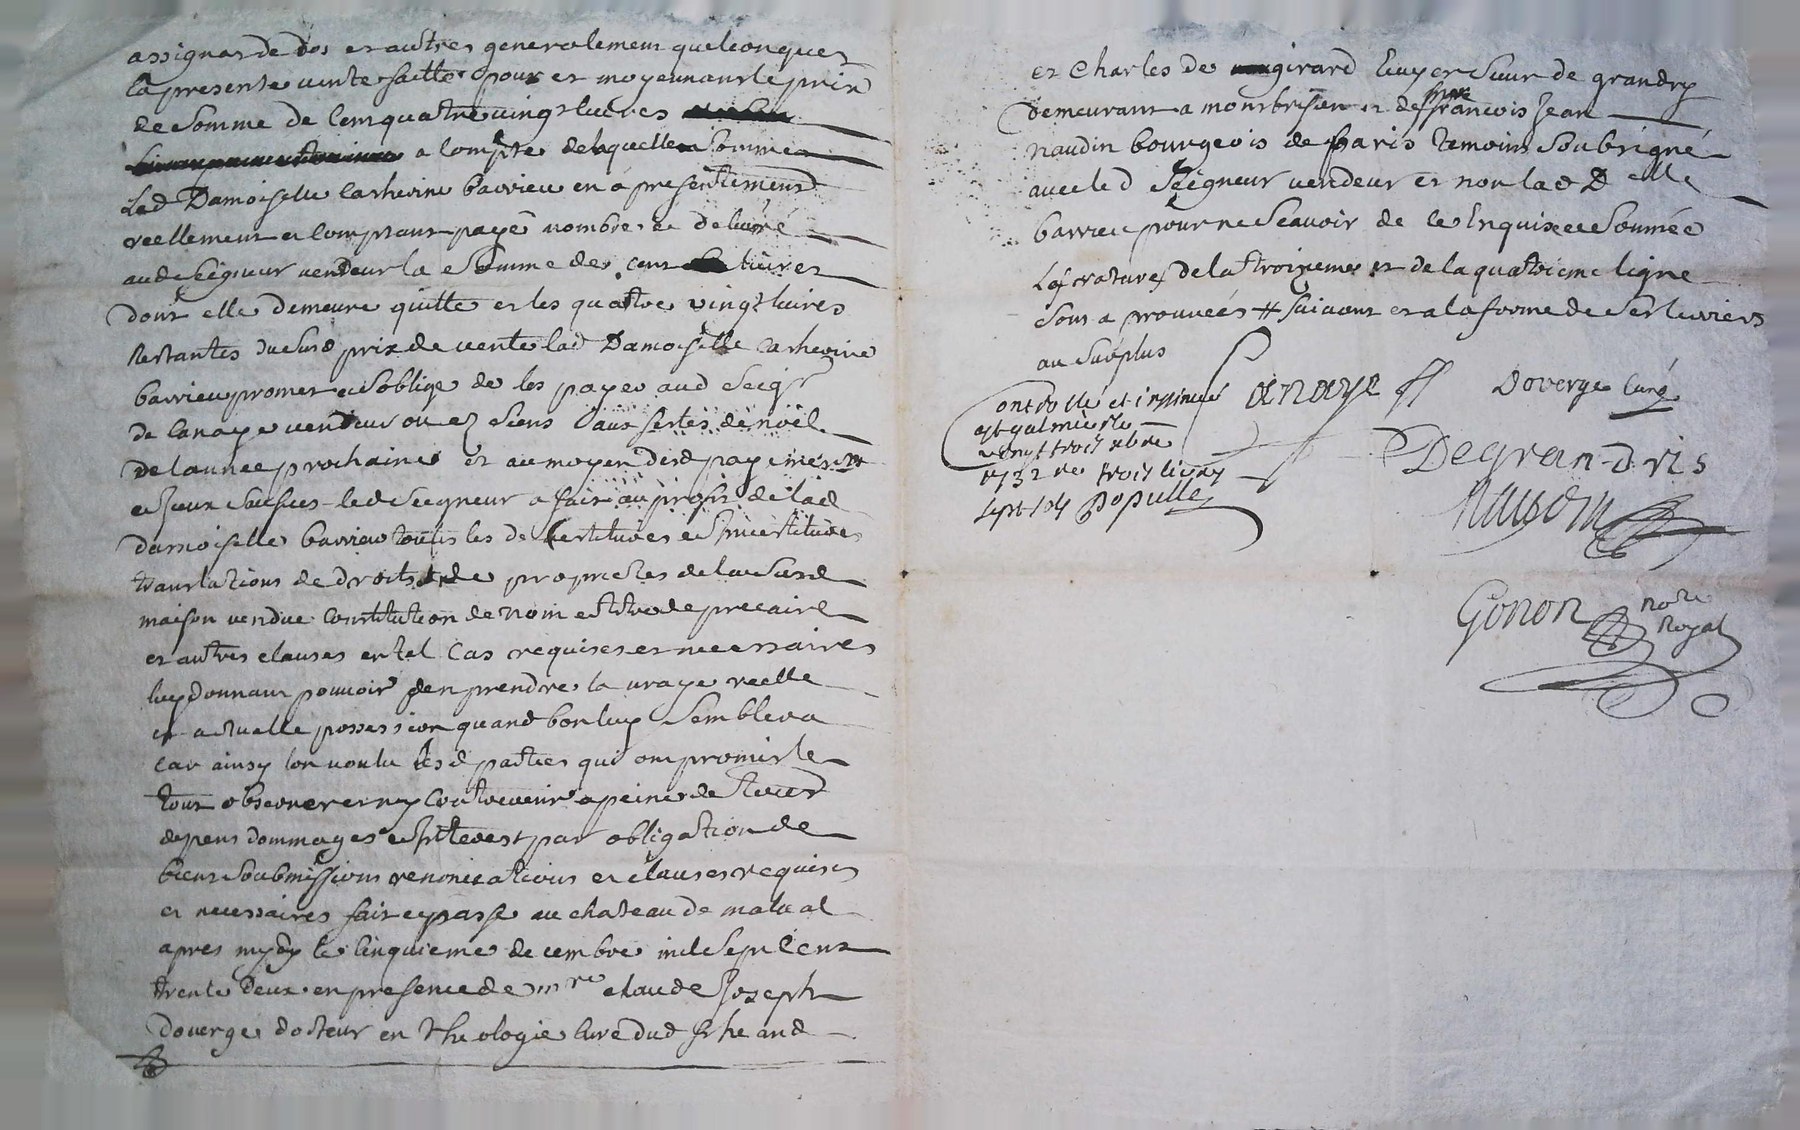 assignar de dos et autres generalement quelconques
la presente vente faitte pour et moyennant le prix
de Somme de Cent quatre vingt livres
a Compte de laquelle Somme
Lad Damoiselle Catherine barrieu en a presentement
reellement et Comptant payé nombré et delivré
aud Seigneur vendeur la Somme de cent livres
dont elle demeure quitte et les quatre vingt livres
Restantes du Susd prix de vente lad Damoiselle Catherine
barrieu promet et Soblige de les payer aud Seigr
de lanoye vendeur ou ez Siens aux festes de noël
de lannee prochaine et au moyen desd payements
ledt Seigneur a fait au profit de lad
damoiselle barrieu toutes les devestitures et Investitures
translations de droits et de proprietes de la Susd
maison vendue Constitution de nom et titre de precaire
et autres clauses en tel Cas requises et necessaires
luy donnant pouvoir den prendre la vraye reelle
et actuelle possession quand bon luy Semblera
car ainsy lon voulu lesd parties qui ont promis le
tout observer et ny Contrevenir a peine de tous
depens dommages et Interest par obligation de
biens Soubmissions renonciations et clauses requises
et necessaires fait et passé au chateau de malval
apres mydy le Cinquieme decembre mil Sept Cent
trente Deux en presence de mre claude Joseph
Doverge docteur en theologie Curé dud St heand
et Charles de girard Ecuyer Sieur de grandry
demeurant a montbrison et de Sieur francois Jean
naudin bourgeois de paris temoins Soubsigné
avec led Seigneur vendeur et non lad Delle
barrieu pour ne Scavoir de ce Enquise et Sommée
Les ratures de la troizieme et de la quatrieme ligne
Sont aprouvées # Suivant et a la forme de Ses terriers
au Surplus
Controllé et insinué
a st galmier le
vingt trois xbre
1732 Re trois livres
Sept sols Populle
Doverge Curé
Degran-dris
Naudin
Gonon note
Royal